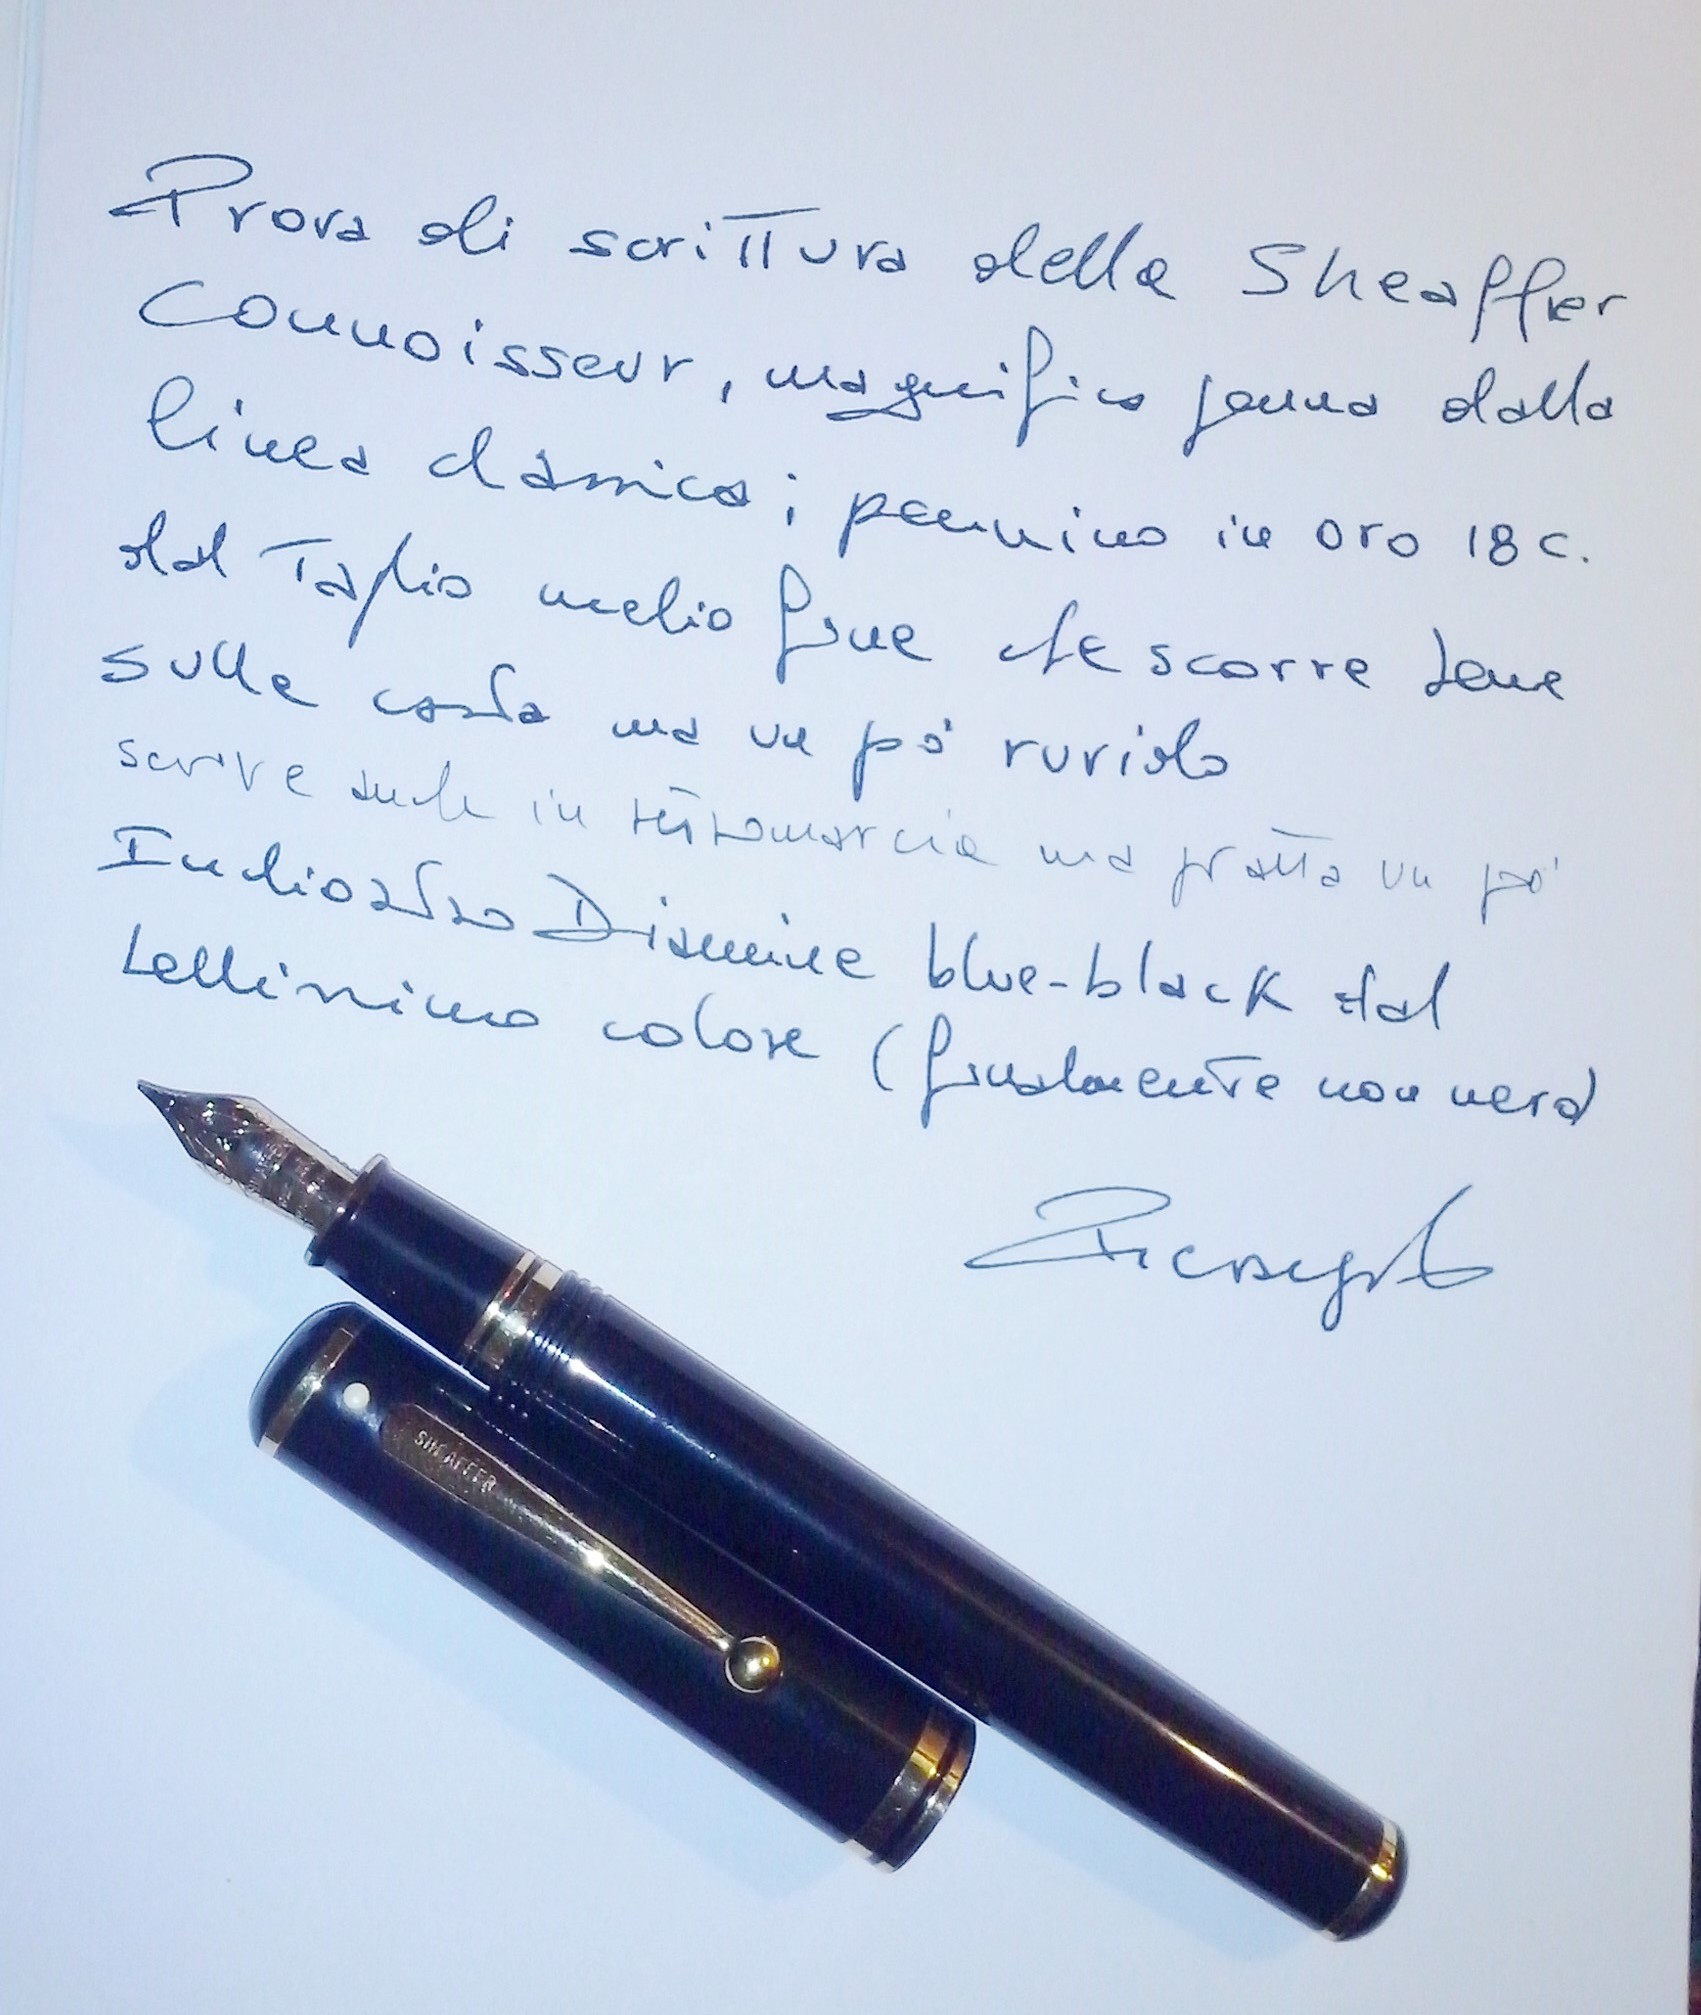 Prova di scrittura della Sheaffer
Connoisseur, magnifica penna dalla
linea classica; pennino in oro 18 c.
dal taglio medio fine che scorre bene
sulla carta ma un pò ruvido
scrive anche in retromarcia ma gratta un pò
Inchiostro Diamine blue-black dal
bellissimo colore (finalmente non nero)
SHEAFFER